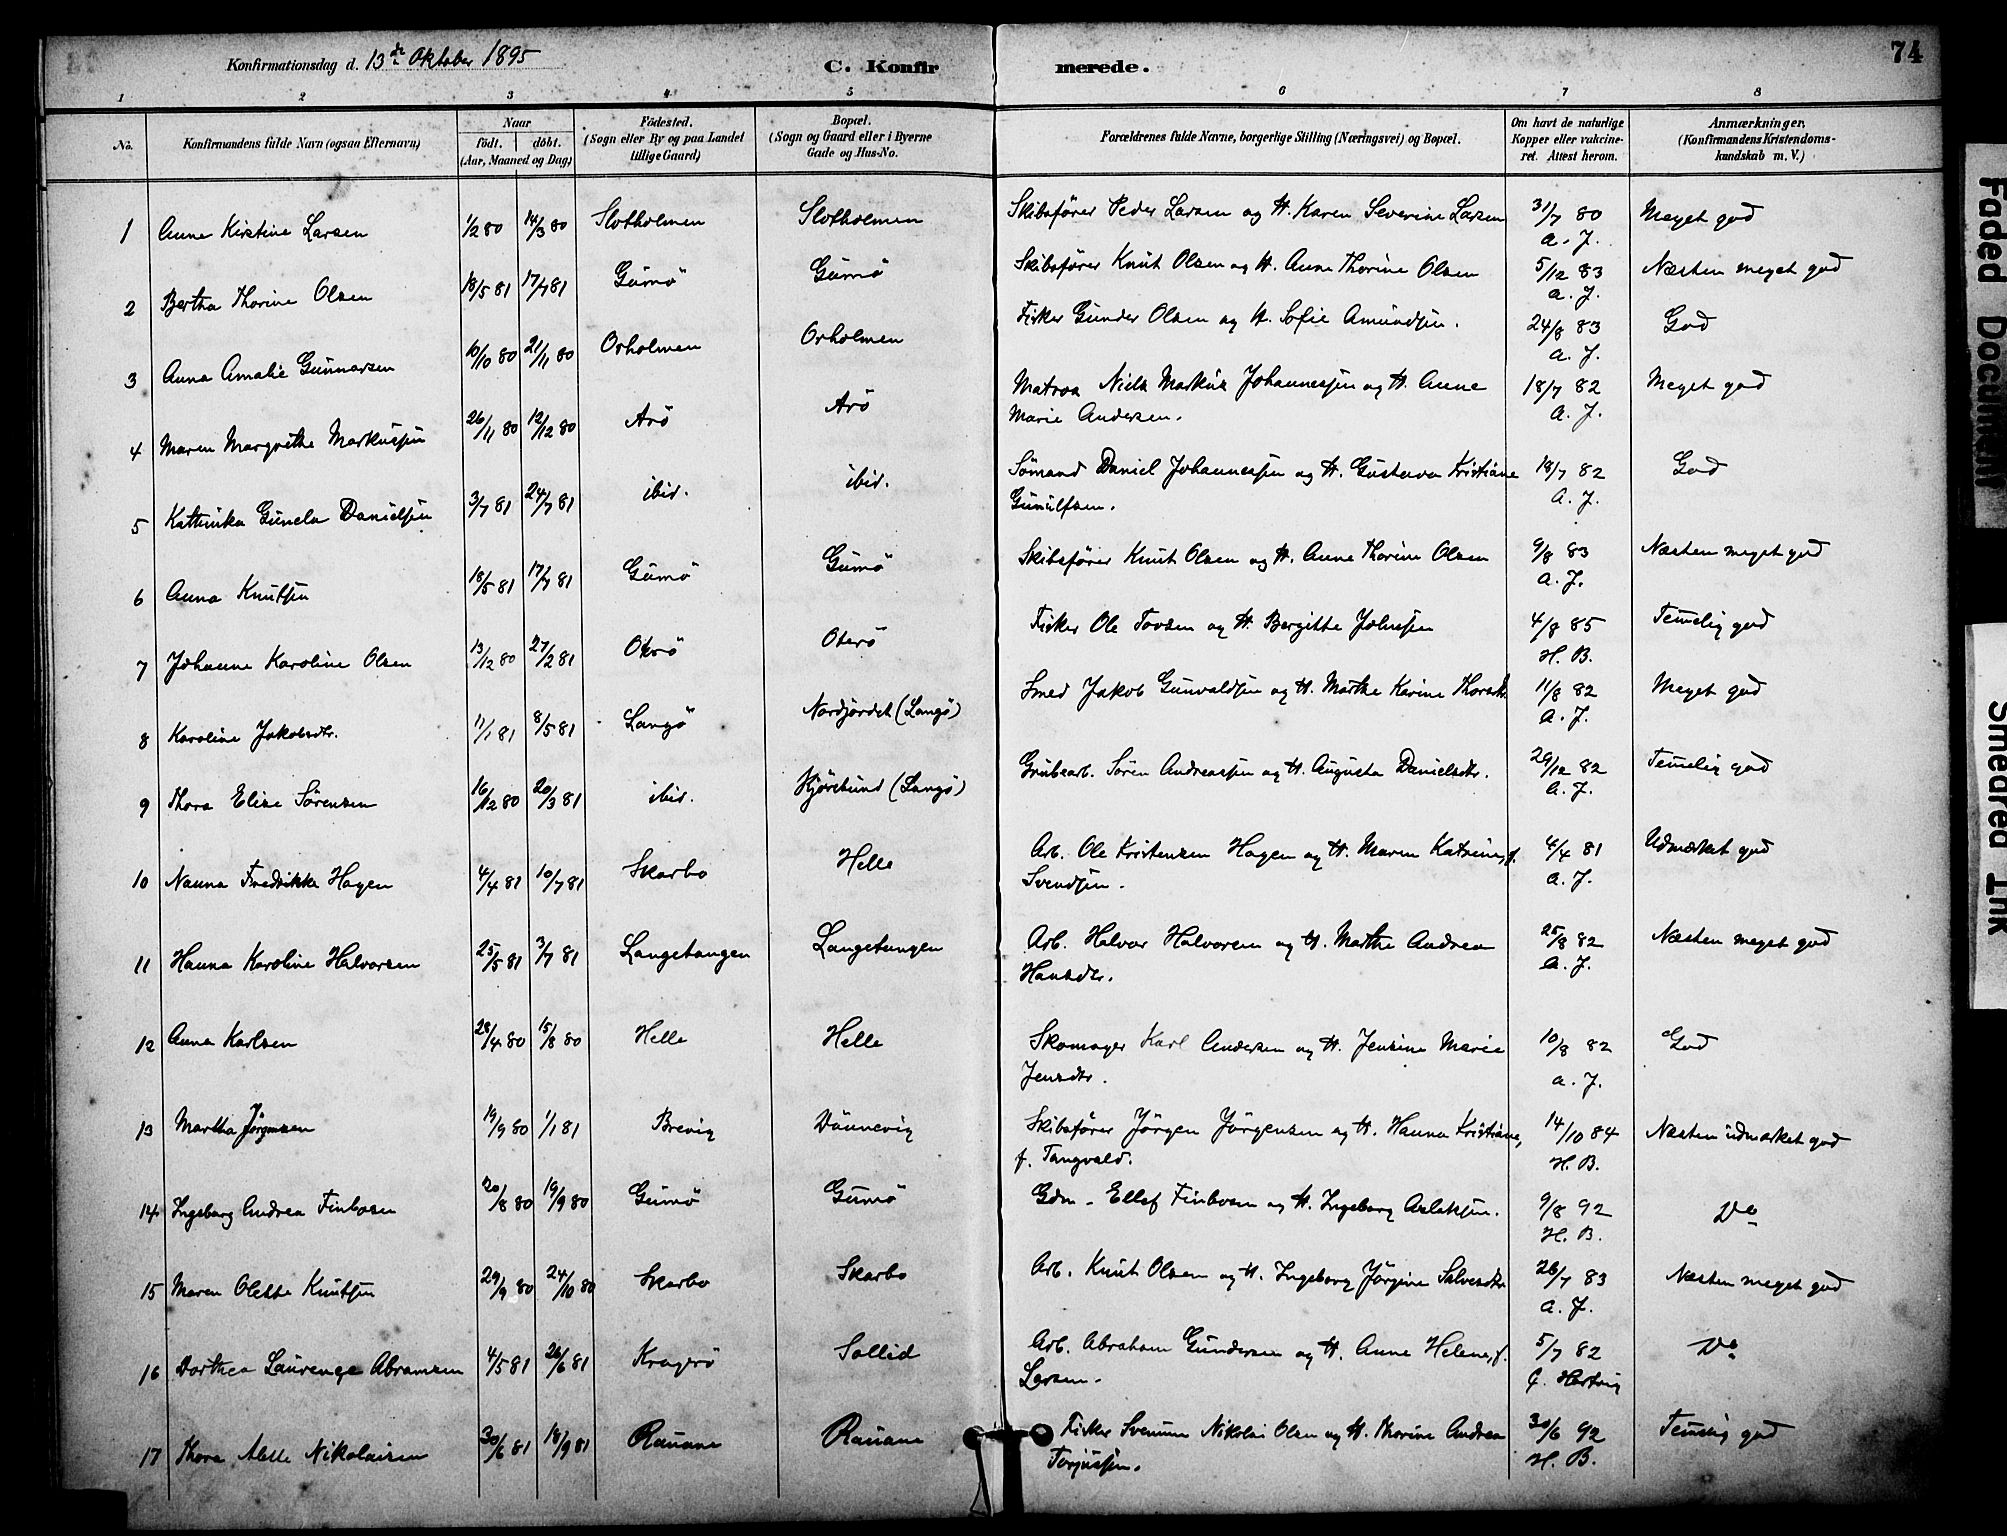 Konfirmationsdag d. 13de Oktober 1895
C. Konfirmerede.
74
1 2 3 4 5 6 7 8
No.
Konfirmandens fulde Navn (ogsaa Efternavn)
Naar
födt. döbt.
(Aar, Maaned og Dag)
Födested.
(Sogn eller By og paa Landet
tillige Gaard)
Bopæl.
(Sogn og Gaard eller i Byerne
Gade og Hus-No.
Forældrenes fulde Navne, borgerlige Stilling (Næringsvei) og Bopæl.
Om havt de naturlige
Kopper eller vakcine-
ret. Attest herom.
Anmærkninger.
(Konfirmandens Kristendoms-
kundskab m. V.)
1 Anne Kirstine Larsen 1/2 80 14/3 80 Slotholmen Slotholmen Skibsfører Peder Larsen og H. Karen Severine Larsen 31/7 80 Meget god
A. J.
2 Bertha Thorine Olsen 18/5 81 17/7 81 Gumö Gumö Skibsfører Knut Olsen og H. Anne Thorine Olsen 5/12 83 Næsten meget god
A. J.
3 Anna Amalie Gunnarsen 10/10 80 21/11 80 Orholmen Orholmen Fisker Gunder Olsen og H. Sofie Amundsen. 24/8 83 God
A. J.
4 Maren Margrethe Markussen 26/11 80 12/12 80 Arö Arö Matros Niels Markus Johannessen og H. Anne 18/7 82 Meget god
Marie Andersen. A. J.
5 Kathinka Gunela Danielsen 3/7 81 24/7 81 ibid. ibid. Sömand Daniel Johannessen og H. Gustava Kristiane 18/7 82 God
Gunulfsen. A. J.
6 Anna Knutsen 18/5 81 17/7 81 Gumö Gumö Skibsfører Knut Olsen og H. Anne Thorine Olsen 9/8 83 Næsten meget god
A. J.
7 Johanne Karoline Olsen 13/12 80 27/2 81 Oterö Oterö Fisker Ole Tovsen og H. Bergitte Johnsen 4/8 85 Temelig god
H. B.
8 Karoline Jakobsdtr. 11/1 81 8/5 81 Langö Nordjordet (Langö) Smed Jakob Gunvaldsen og H. Marthe Karine Thorsdtr. 11/8 82 Meget god
A. J.
9 Thora Elise Sørensen 16/12 80 20/3 81 ibid. Hjörtsund (Langö) Grubearb. Sören Andreassen og H. Augusta Danielsdtr. 29/12 82 Temelig god
A. J.
10 Nanna Fredrikke Hagen 4/4 81 10/7 81 Skarbo Helle Arb. Ole Kristensen Hagen og H. Maren Katrine, f. 4/4 81 Udmærket god
Svendsen. A. J.
11 Hanna Karoline Halvorsen 25/5 81 3/7 81 Langetangen Langetangen Arb. Halvor Halvorsen og H. Marthe Andrea 25/8 82 Næsten meget god
Hansdtr. A. J.
12 Anna Karlsen 28/4 80 15/8 80 Helle Helle Skomager Karl Andersen og H. Jensine Marie 10/8 82 God
Jensdtr. A. J.
13 Martha Jörgensen 19/9 80 1/1 81 Brevig Dönnevig Skibsfører Jörgen Jörgensen og H. Hanna Kristiane, 14/10 84 Næsten udmærket god
f. Tangvald. H. B.
14 Ingeborg Andrea Finbosen 20/8 80 19/9 80 Gumö Gumö Gdm. Ellef Finbosen og H. Ingeborg Aslaksen. 9/8 92 Do
H. B.
15 Maren Olette Knutsen 29/9 80 24/10 80 Skarbo Skarbo Arb. Knut Olsen og H. Ingeborg Jörgine Salvesdtr. 26/7 83 Næsten meget god
A. J.
16 Dorthea Laurense Abramsen 4/5 81 26/6 81 Kragerö Sollid Arb. Abraham Gundersen og H. Anne Helene, f. 5/7 82 Do
Larsen. Hertvig
17 Thora Nikolaisen 30/6 81 18/9 81 Rauane Rauane Fisker Svenum Nikolai Olsen og H. Thorine Andrea 30/6 92 Temelig god
Torjussen. H. B.
Faded Document
Smeared Ink